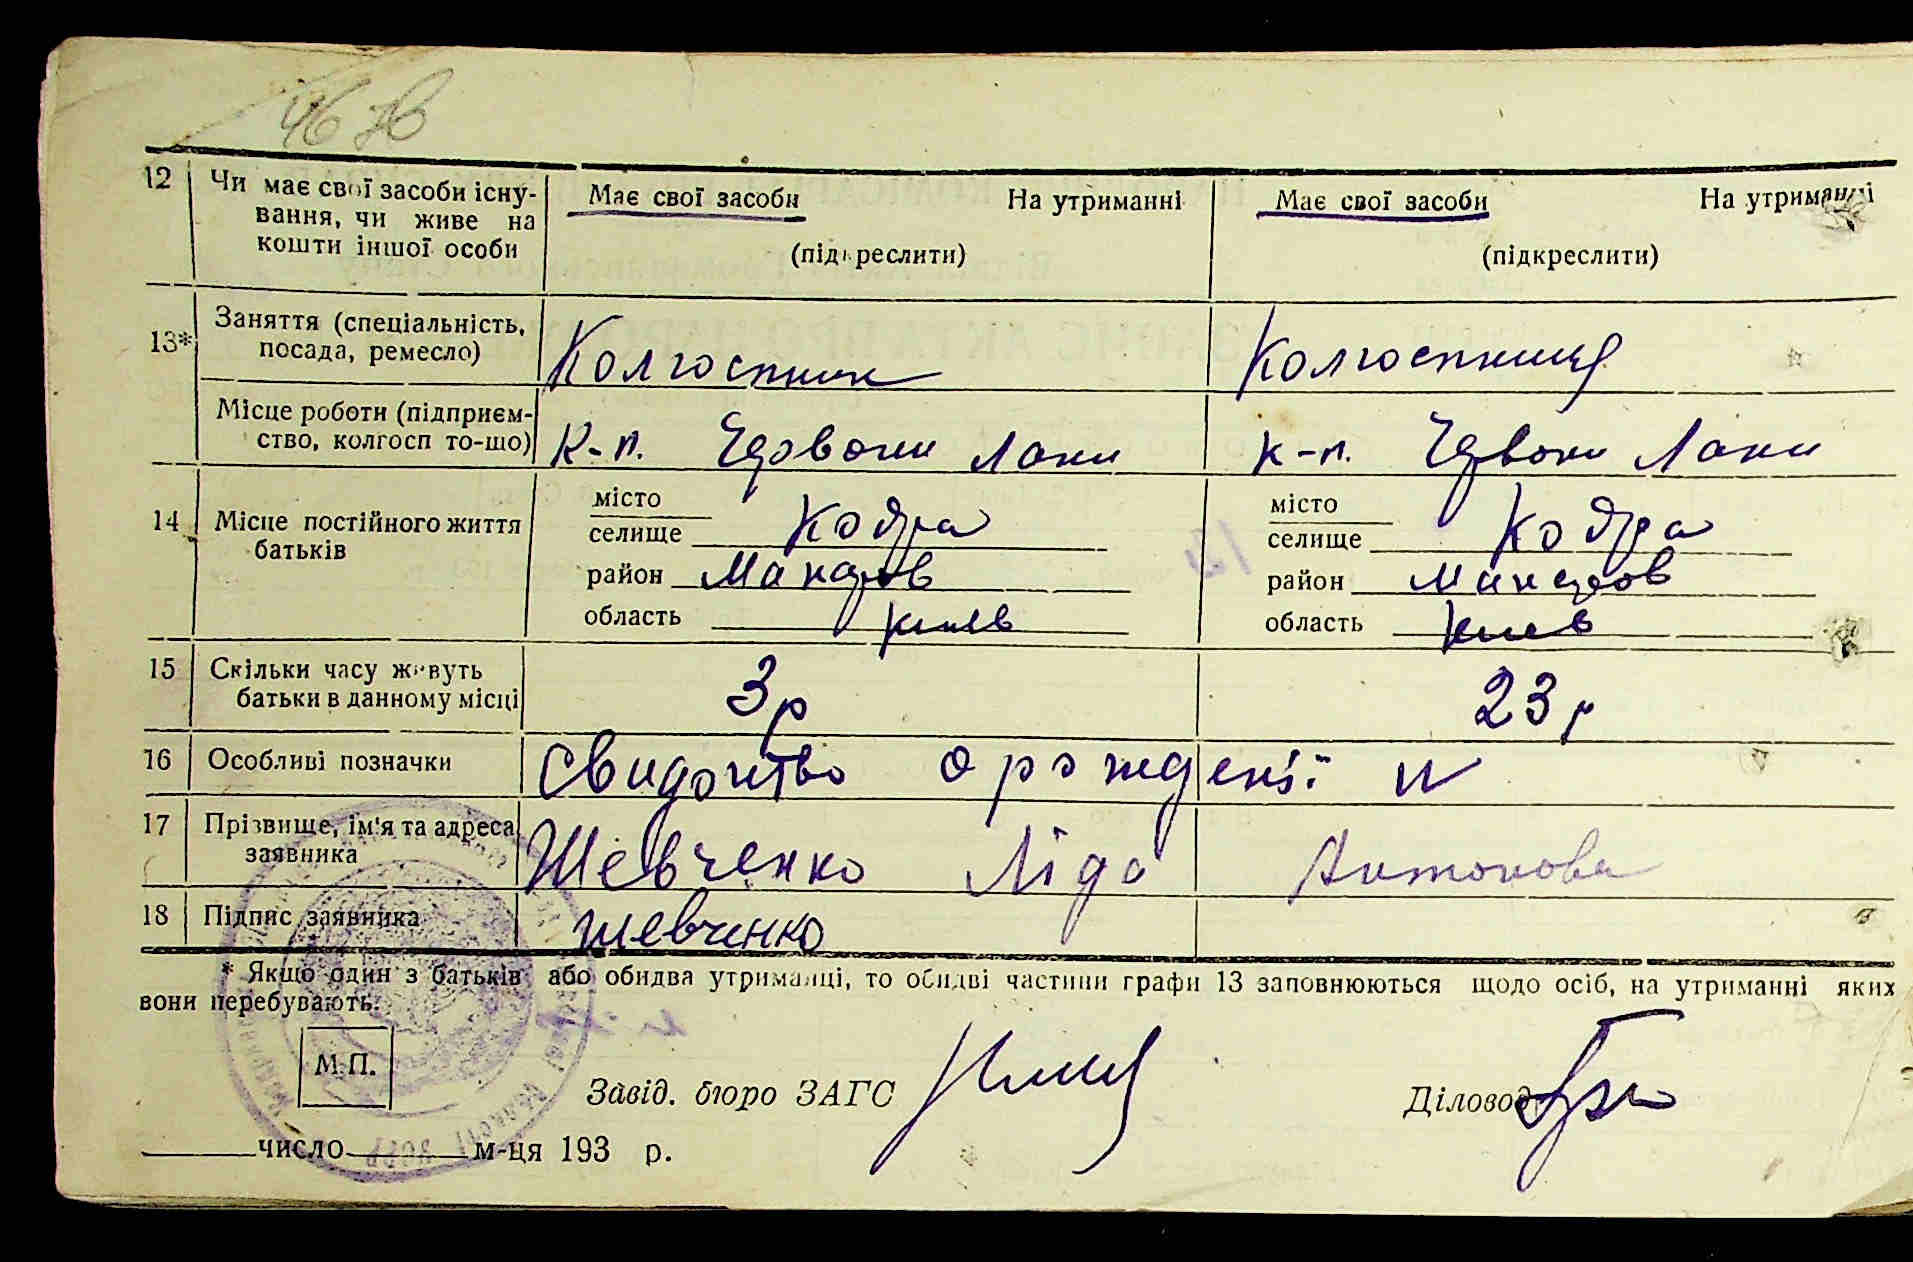 46 зв
12 Чи має свої засоби існу- Має свої засоби На утриманні Має свої засоби На утриманні
вання, чи живе на
кошти іншої особи (підкреслити) (підкреслити)
13* Заняття (спеціальність, посада, ремесло) Колгоспник Колгоспниця
Місце роботи (підприєм-
ство, колгосп то-що) к-п. Червони Лани к-п. Червони Лани
14 Місце постійного життя
батьків
місто місто
селище Кодра селище Кодра
район Макаров район Макаров
область Киев область Киев
15 Скільки часу живуть
батьки в данному місці 3 р 23 р
16 Особливі позначки Свидоцтво о рожденії №
17 Прізвище, ім'я та адреса
заявника Шевченко Ліда Антоновa
18 Підпис заявника Шевченко
* Якщо один з батьків або обидва утриманці, то обидві частини графи 13 заповнюються щодо осіб, на утриманні яких
вони перебувають.
М.П.
Завід. бюро ЗАГС Діловод
число м-ця 193 р.